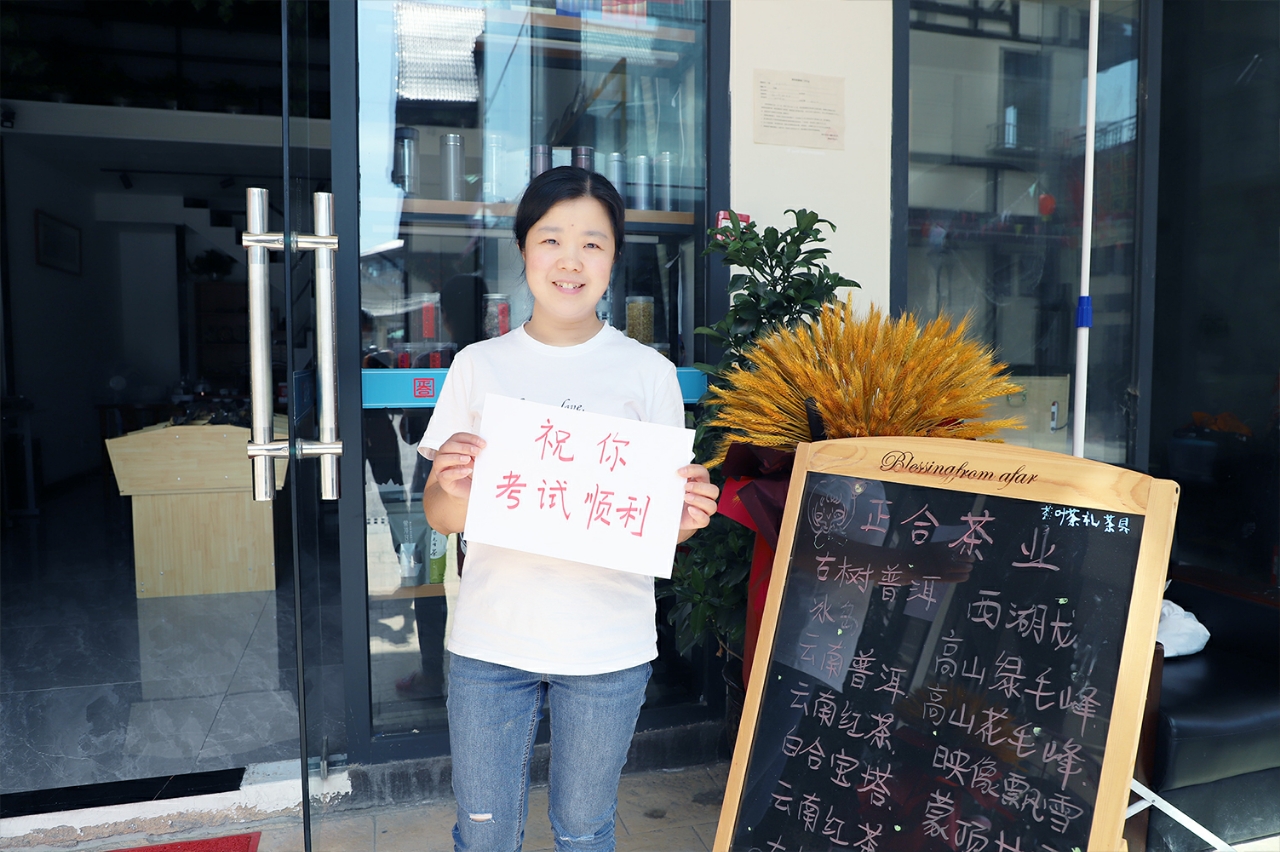 祝你
考试顺利
Blessing from afar
正合茶业
茶叶茶礼茶具
古树普洱
冰岛
云南普洱
云南红茶
百合宝塔
云南红茶
西湖龙
高山绿毛峰
高山花毛峰
映像飘雪
蒙顶甘